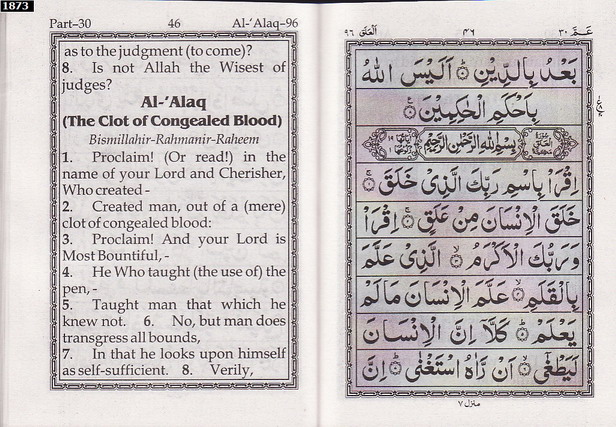 1873
Part–30 46 Al-'Alaq–96
as to the judgment (to come)?
8. Is not Allah the Wisest of
judges?
Al-'Alaq
(The Clot of Congealed Blood)
Bismillahir-Rahmanir-Raheem
1. Proclaim! (Or read!) in the
name of your Lord and Cherisher,
Who created -
2. Created man, out of a (mere)
clot of congealed blood:
3. Proclaim! And your Lord is
Most Bountiful, -
4. He Who taught (the use of) the
pen,-
5. Taught man that which he
knew not. 6. No, but man does
transgress all bounds,
7. In that he looks upon himself
as self-sufficient. 8. Verily,
عَمَّ ٣٠ ٤٦ اَلْعَلَق ٩٦
بَعْدُ بِالدِّيْنِ ۞ اَلَيْسَ اللّٰهُ
بِاَحْكَمِ الْحٰكِمِيْنَ ۞
بِسْمِ اللهِ الرَّحْمٰنِ الرَّحِيْمِ
اِقْرَاْ بِاسْمِ رَبِّكَ الَّذِىْ خَلَقَ ۞
خَلَقَ الْاِنْسَانَ مِنْ عَلَقٍ ۞ اِقْرَاْ
وَرَبُّكَ الْاَكْرَمُ ۞ الَّذِىْ عَلَّمَ
بِالْقَلَمِ ۞ عَلَّمَ الْاِنْسَانَ مَا لَمْ
يَعْلَمْ ۞ كَلَّاۤ اِنَّ الْاِنْسَانَ
لَيَطْغٰٓى ۞ اَنْ رَّاٰهُ اسْتَغْنٰى ۞ اِنَّ
منزل ٧